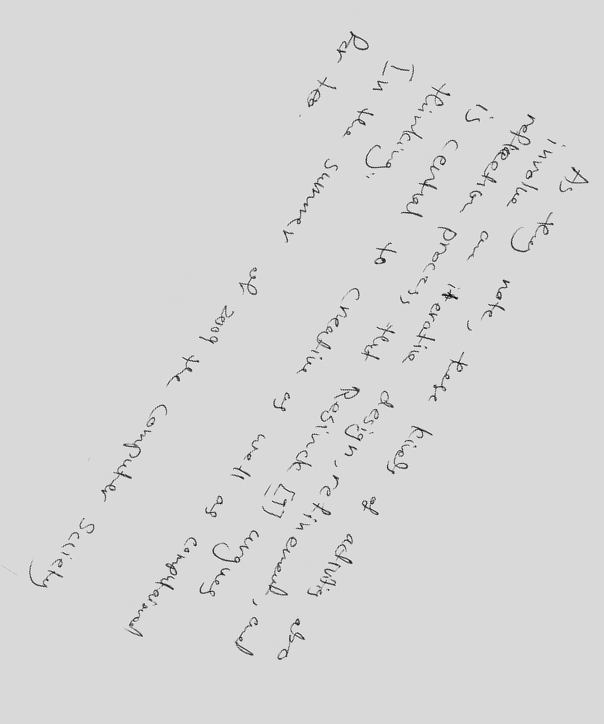 As they note, these kinds of activities also
involve an iterative design, refinement, and
reflection process that Resnick [9] argues
is central to creative as well as computational
thinking.
In the summer of 2009 the Computer Society
for